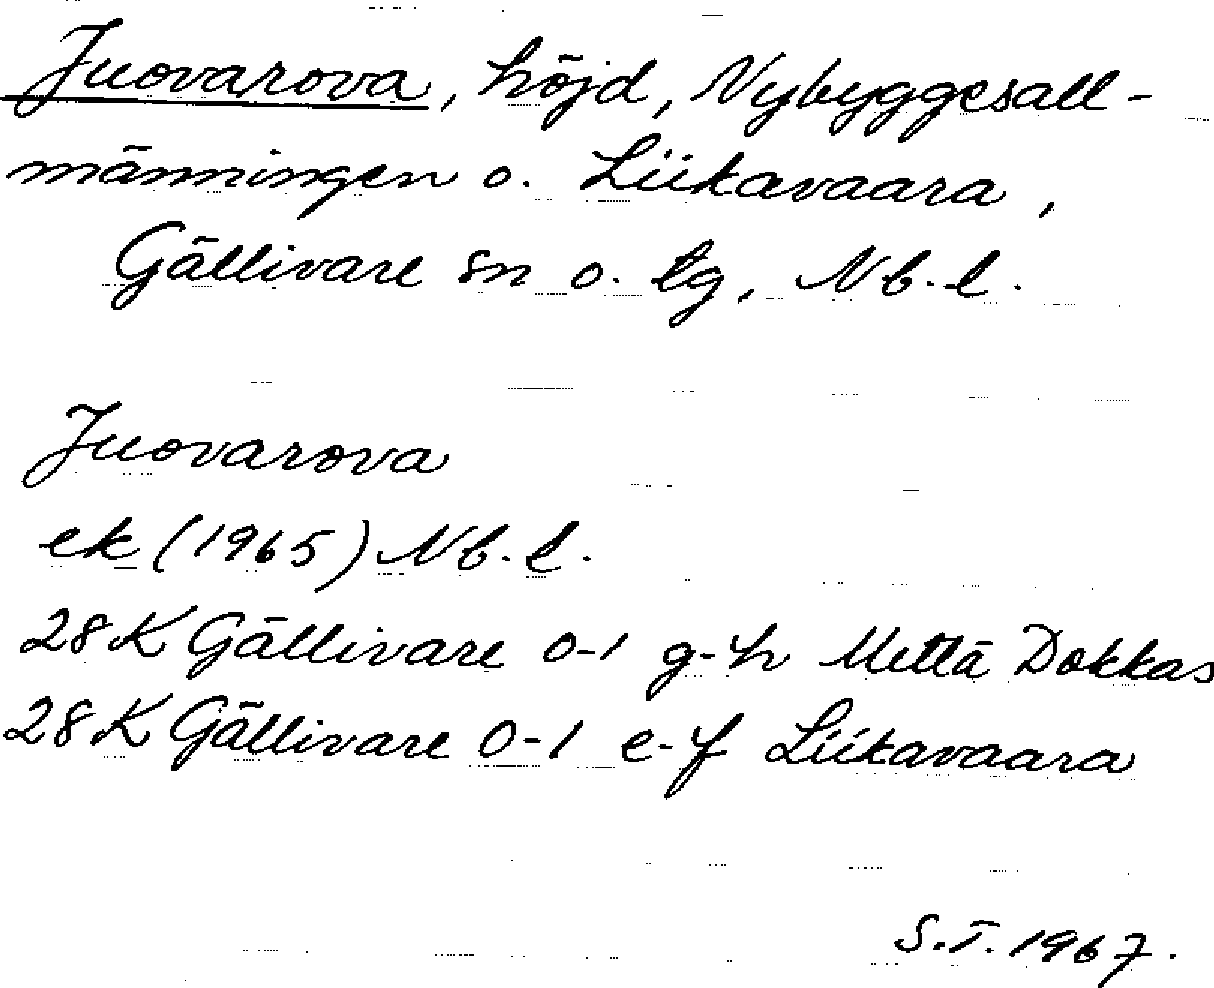 Juovarova, höjd, Nybyggesall-
männingen o. Liikavaara,
Gällivare sn o. tg, Nb. l.
Juovarova
ek (1965) Nb. l.
28 K Gällivare 0-1 g-h Mettä Dokkas
28 K Gällivare 0-1 e-f Liikavaara
S.T. 1967.